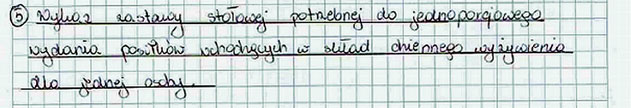 ⑤ Wykaz zastawy stołowej potrzebnej do jednoporcjowego
wydania posiłków wchodzących w skład dziennego wyżywienia
dla jednej osoby.